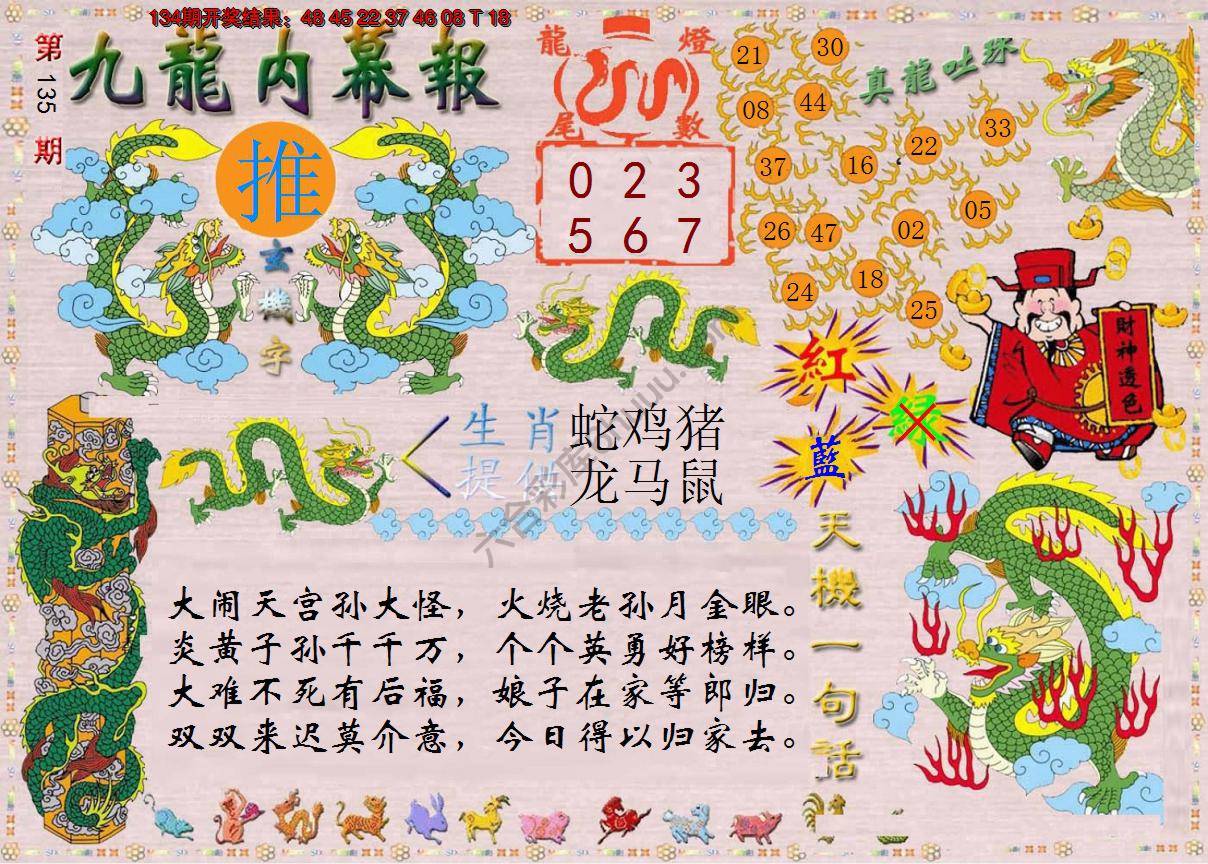 134期开奖结果：48 45 22 37 46 08 T 18
第135期
九龍内幕報
推
玄機字
龍燈
尾數
0 2 3
5 6 7
真龍吐珠
21
30
08
44
33
22
37
16
05
26
47
02
18
24
25
財神透色
紅
绿
藍
生肖
提供
蛇鸡猪
龙马鼠
天機一句話
大闹天宫孙大怪，火烧老孙月金眼。
炎黄子孙千千万，个个英勇好榜样。
大难不死有后福，娘子在家等郎归。
双双来迟莫介意，今日得以归家去。